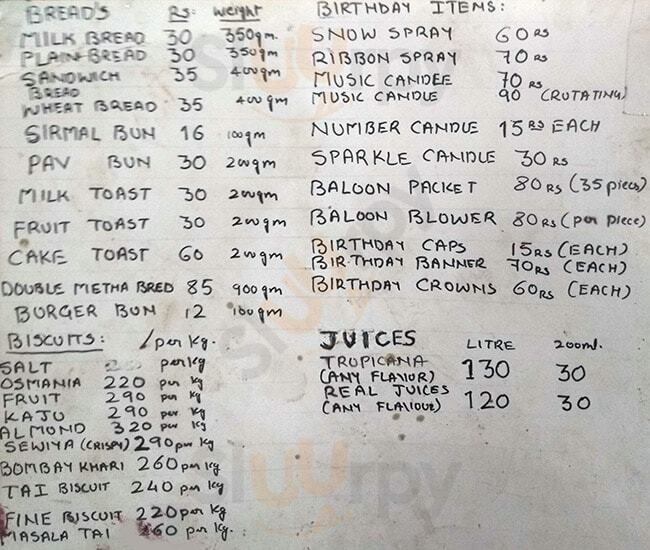 BREAD'S Rs: weight
MILK BREAD 30 350gm.
PLAIN BREAD 30 350gm
SANDWICH BREAD 35 400gm
WHEAT BREAD 35 400gm
SIRMAL BUN 16 100gm
PAV BUN 30 200gm
MILK TOAST 30 200gm
FRUIT TOAST 30 200gm
CAKE TOAST 60 200gm
DOUBLE METHA BRED 85 900gm
BORGER BUN 12 100gm
BISCUITS: /per kg.
SALT per kg
OSMANIA 220 per kg
FRUIT 290 per kg
KAJU 290 per kg
ALMOND 320 per kg
SEWIYA (CRISPY) 290 per kg
BOMBAY KHARI 260 per kg
TAI BISCUIT 240 per kg
FINE BISCUIT 220 per kg
MASALA TAI 260 per kg.
BIRTHDAY ITEMS:
SNOW SPRAY 60 RS
RIBBON SPRAY 70 RS
MUSIC CANDEE 70 RS
MUSIC CANDLE 90 (RUTATING)
NUMBER CANDLE 15 RS EACH
SPARKLE CANDLE 30 RS
BALOON PACKET 80 RS (35 pieces)
BALOON BLOWER 80 RS (per piece)
BIRTHDAY CAPS 15 RS (EACH)
BIRTHDAY BANNER 70 RS (EACH)
BIRTHDAY CROWNS 60 RS (EACH)
JUICES LITRE 200ml.
TROPICANA (ANY FLAVIOR) 130 30
REAL JUICES (ANY FLAVIOUR) 120 30
sluurpy
sluurpy
sluurpy